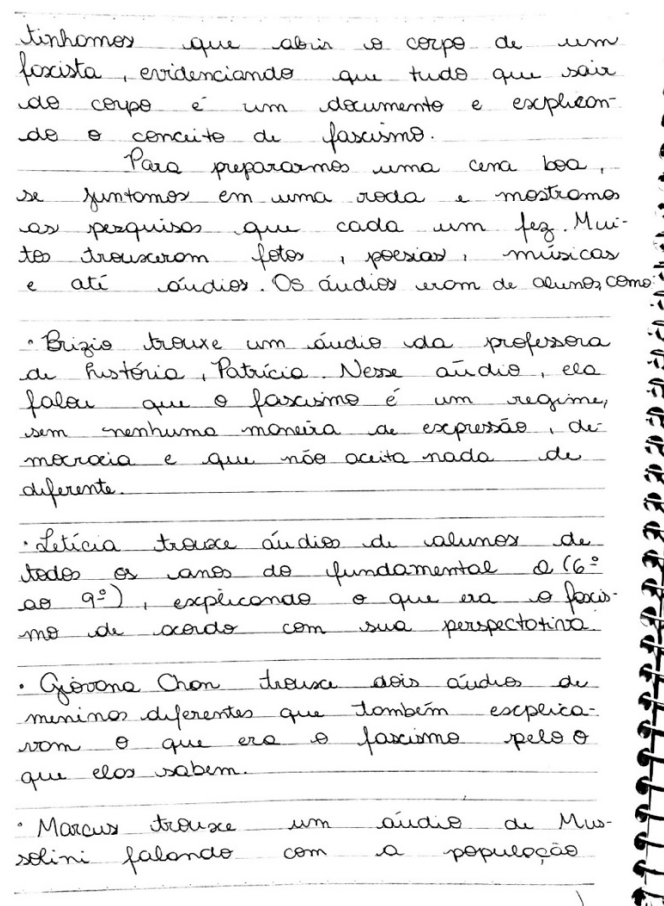 tinhamos que abrir o corpo de um
facista, evidenciando que tudo que sair
do corpo é um documento e explican-
do o conceito de fascismo.
Para prepararmos uma cena boa,
se juntamos em uma roda e mostramos
as pesquisas que cada um fez. Mui-
tos trouxeram fotos, poesias, músicas
e até áudios. Os áudios eram de alunos como:
• Brizio trouxe um áudio da professora
de história, Patrícia. Nesse aúdio, ela
falou que o fascismo é um regime,
sem nenhuma maneira de expressão, de-
mocracia e que não aceita nada de
diferente.
• Letícia trouxe áudios de alunos de
todos os anos do fundamental 2 (6º
ao 9º), explicando o que era o facis-
mo de acordo com sua perspectativa.
• Giovana Chan trouxe dois aúdios de
meninas diferentes que também explica-
vam o que era o fascismo pelo o
que elas sabem.
• Marcus trouxe um aúdio de Mus-
solini falando com a população